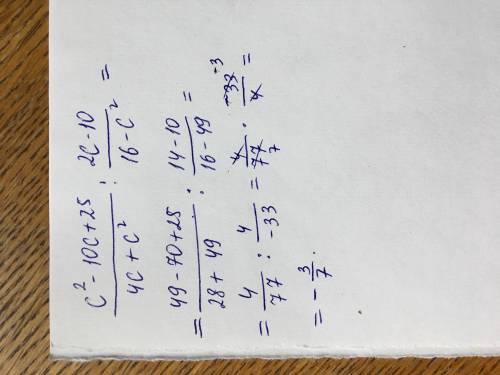 (c² - 10c + 25)/(4c + c²) : (2c - 10)/(16 - c²) =
= (49 - 70 + 25)/(28 + 49) : (14 - 10)/(16 - 49) =
= 4/77 : 4/-33 = 4/77 7 · -33 -3/4 =
= - 3/7.